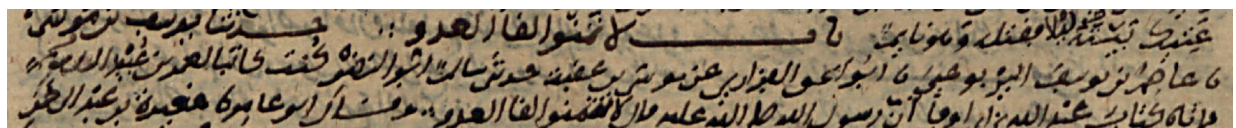 عتيك بيته ليلا فقتله وهو نايم باب لا تمنوا لقا العدو حدثنا يوسف بن موسى
نا عاصم بن يوسف اليربوعي نا ابو اسحق الفزاري عن موسى بن عقبة حدثني سالم ابو النضر كنت كاتبا لعمر بن عبيد الله
فاتاه كتاب عبد الله بن ابي اوفى ان رسول الله صلى الله عليه قال لا تمنوا لقا العدو وقال ابو عامر نا مغيرة بن عبد الرحمن